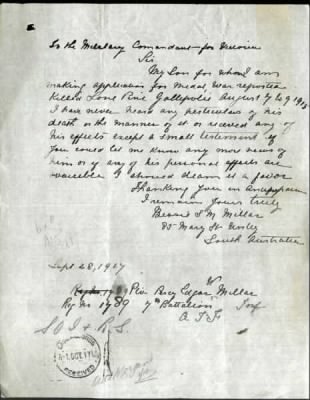 To the Military Comandant for Victoria
Sir
My Son for whom I am
making application for Medal, was reported
Killed Lone Pine Gallepolis August 7 to 9 1915
I have never heard any perticulars of his
death or the manner of it or received any of
his effects except a small testement if
you could let me know any more news of
him or if any of his personal effects are
available I should deam it a favor
Thanking you in Anticipation
I remain yours truly
Bessie S. M. Millar
85 Mary St Unley
South Australia
Sept 28, 1917
Pte Roy Edgar Millar
Reg No 1789 7th Battalion
A I F
1 OCT 191
RECEIVED